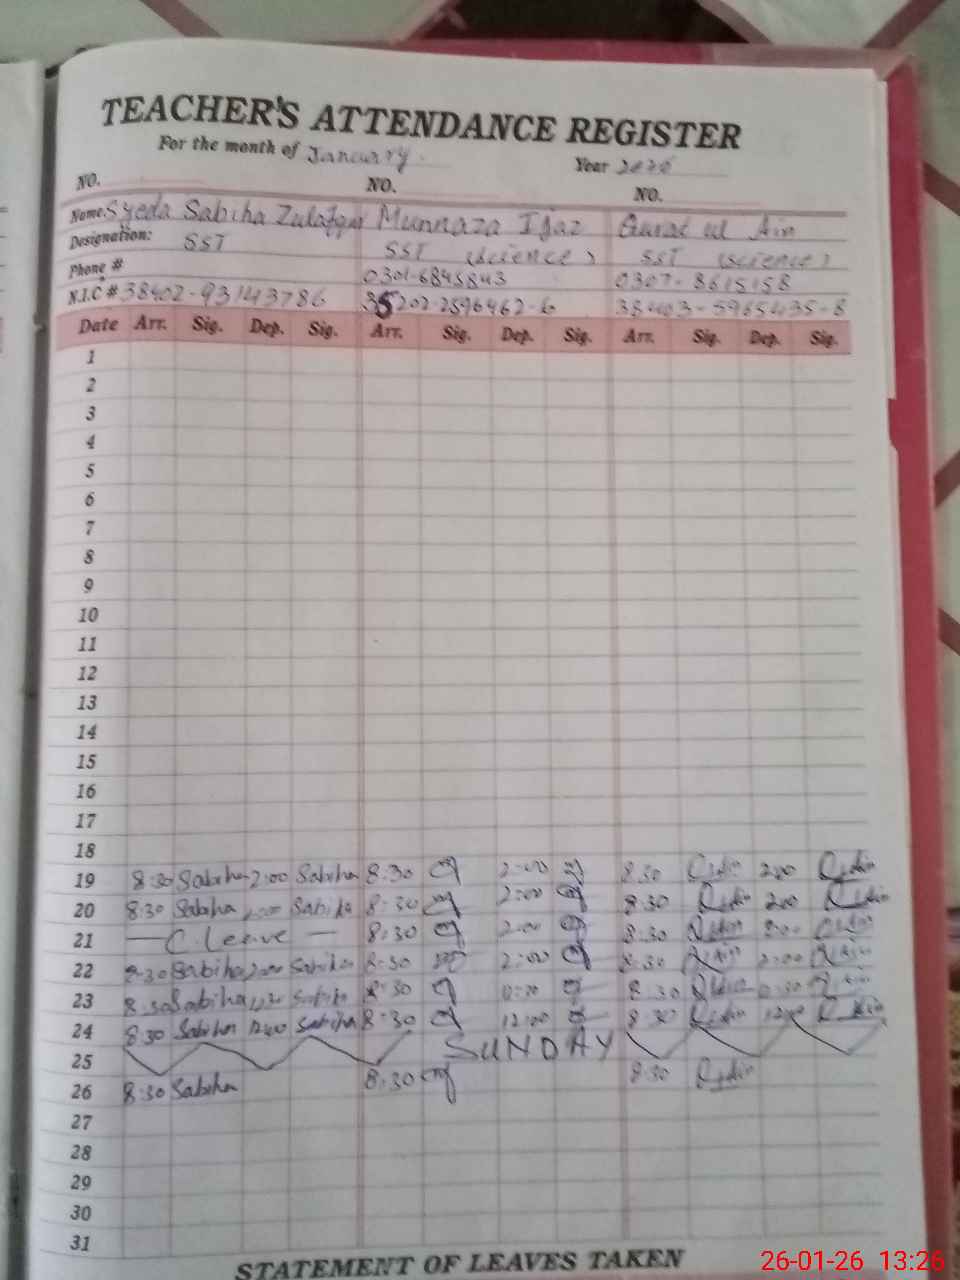 TEACHER'S ATTENDANCE REGISTER
For the month of January. Year
NO. NO. NO.
Name. Syeda Sabiha Munnaza Ijaz Qurat ul Ain
Designation: SST SST (science) SST (science)
Phone # 0301-6845843 0307-8615158
N.I.C # 38402-93143786 35202-2596462-6 38403-5965435-8
Date Arr. Sig. Dep. Sig. Arr. Sig. Dep. Sig. Arr. Sig. Dep. Sig.
1
2
3
4
5
6
7
8
9
10
11
12
13
14
15
16
17
18
19 8:30 Sabiha 2:00 Sabiha 8:30 2:00 8:30 2:00
20 8:30 Sabiha Sabiha 8:30 2:00 8:30 2:00
21 — C. leave — 8:30 2:00 8:30 2:00
22 8:30 Sabiha 2:00 Sabiha 8:30 2:00 8:30 2:00
23 8:30 Sabiha Sabiha 8:30 8:30
24 8:30 Sabiha 12:00 Sabiha 8:30 12:00 8:30 12:00
25 SUNDAY
26 8:30 Sabiha 8:30 8:30
27
28
29
30
31
STATEMENT OF LEAVES TAKEN
26-01-26 13:26